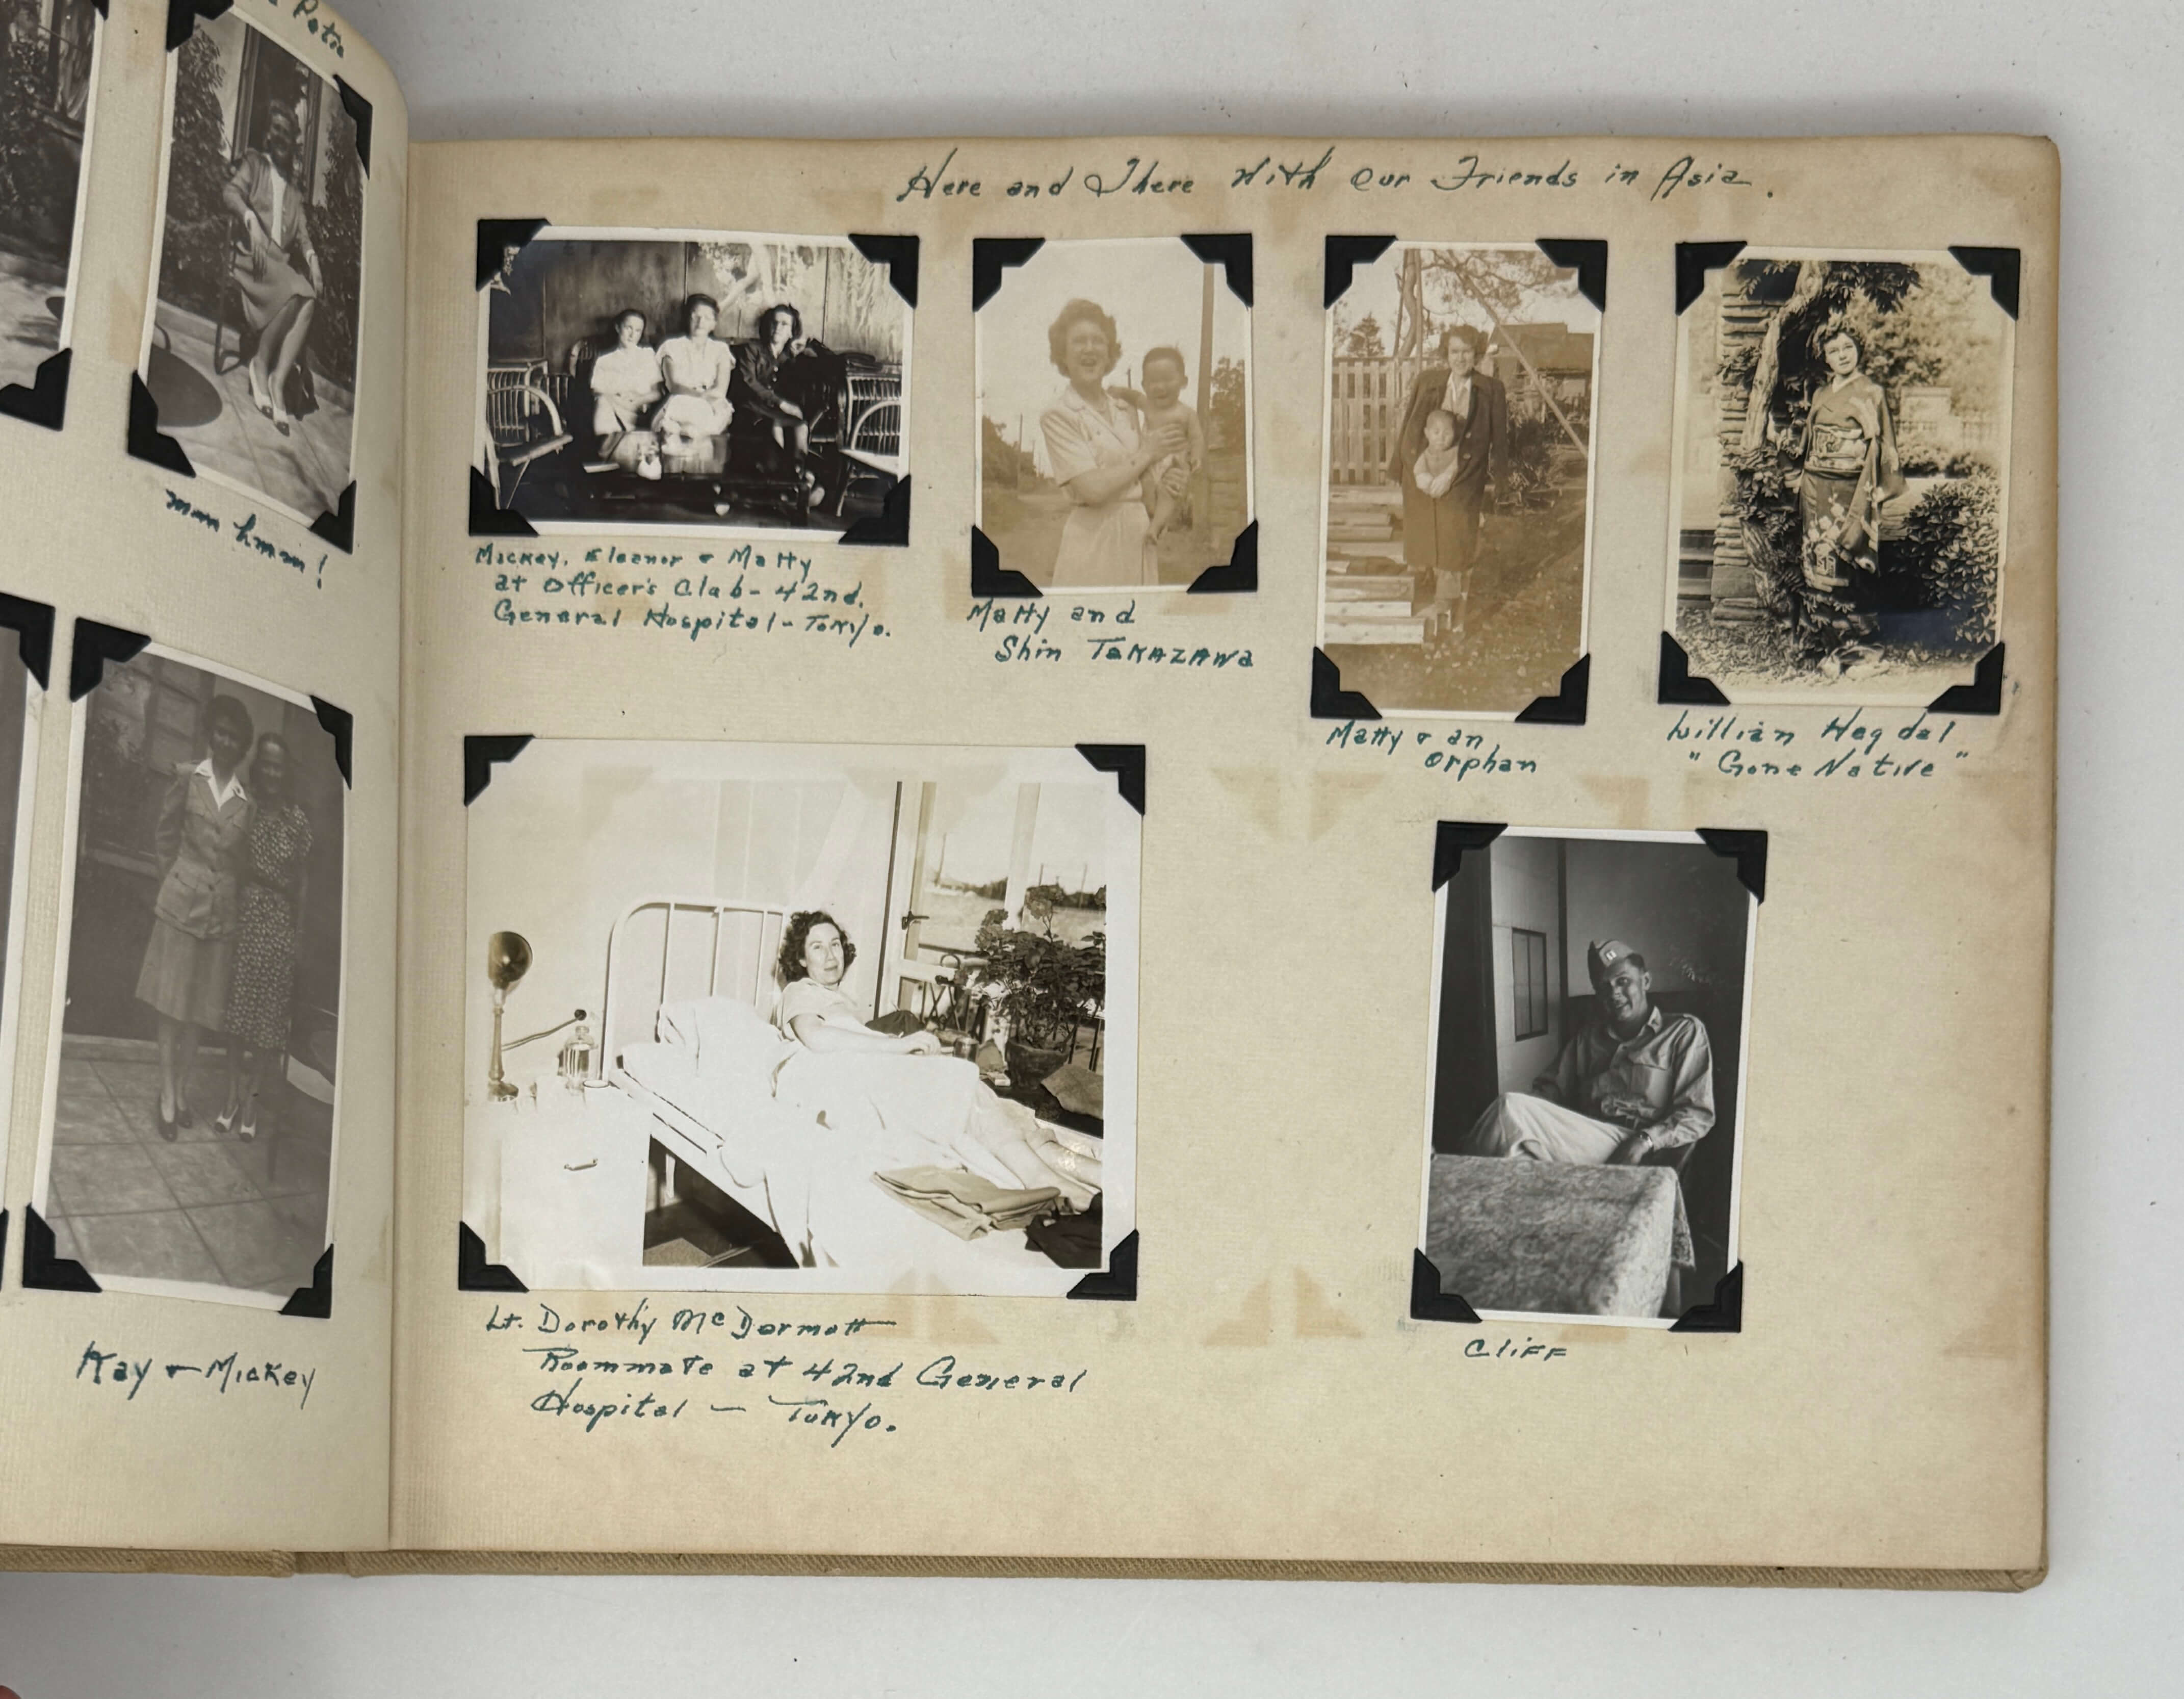 Patio
mm hmm!
Kay & Mickey
Here and There With Our Friends in Asia.
Mickey, Eleanor & Matty
at Officer's Club - 42nd.
General Hospital - Tokyo.
Matty and
Shin TAKAZAWA
Matty & an
Orphan
Lillian Hegdal
"Gone Native"
Lt. Dorothy McDermott
Roommate at 42nd General
Hospital - Tokyo.
Cliff